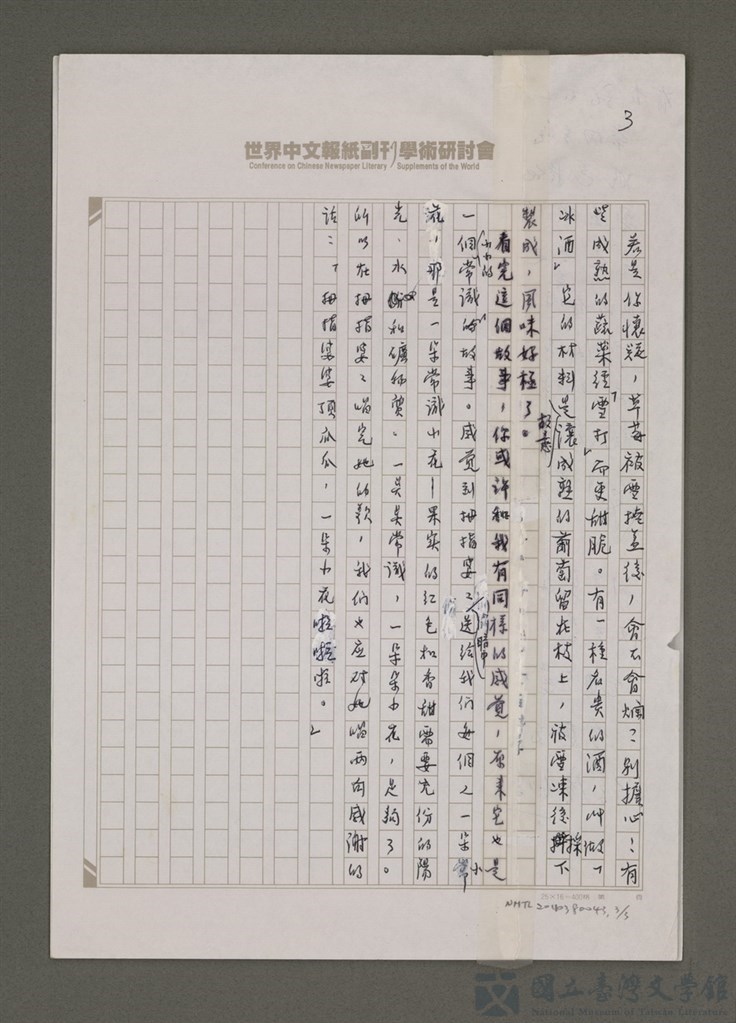 3
世界中文報紙副刊學術研討會
Conference on Chinese Newspaper Literary Supplements of the World
若是你懷疑，草莓被雪掩蓋後，會不會爛？別擔心！有
些成熟的蔬菜經「雪打」而更甜脆。有一種名貴的酒，叫做「
冰酒」它的材料是故意讓成熟的葡萄留在枝上，被雪凍後採下
製成，風味好極了。
看完這個故事，你或許和我有同樣的感覺，原來它也是
一個小小的常識的故事。感覺到拇指婆婆暗中送給我們每個人一朵小
花，那是一朵常識小花—果實的紅色和香甜需要充份的陽
光、水份和礦物質。一共是常識，一朵朵小花，足夠了。
所以在拇指婆婆唱完她的歌，我們也應對她唱兩句感謝的
話：「拇指婆婆頂瓜瓜，一朵小花啦啦啦。」
25×16＝400
NHTL 20110380045, 3/3
國立臺灣文學館
National Museum of Taiwan Literature